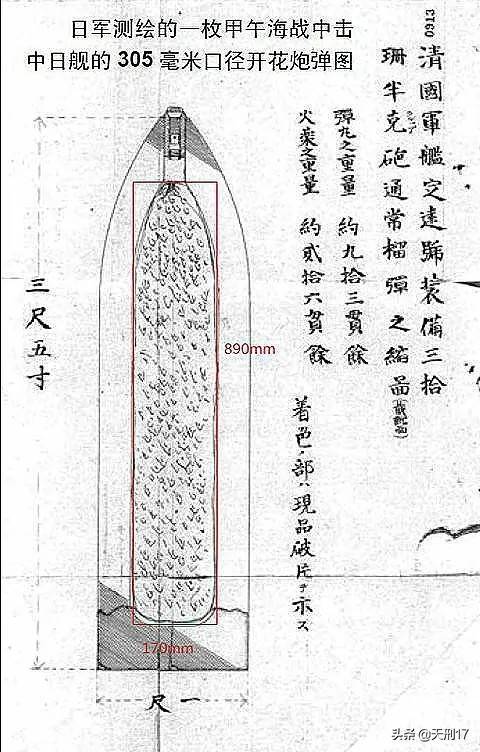 日军测绘的一枚甲午海战中击
中日舰的 305 毫米口径开花炮弹图
0913
清國軍艦定遠號装備三拾
珊半克砲通常榴彈之縮图
彈丸之重量 約九拾三貫餘
火薬之重量 約貳拾六貫餘
着色ノ部ハ現品破片ヲ示ス
三尺五寸
890mm
170mm
一尺
头条 @天刑17